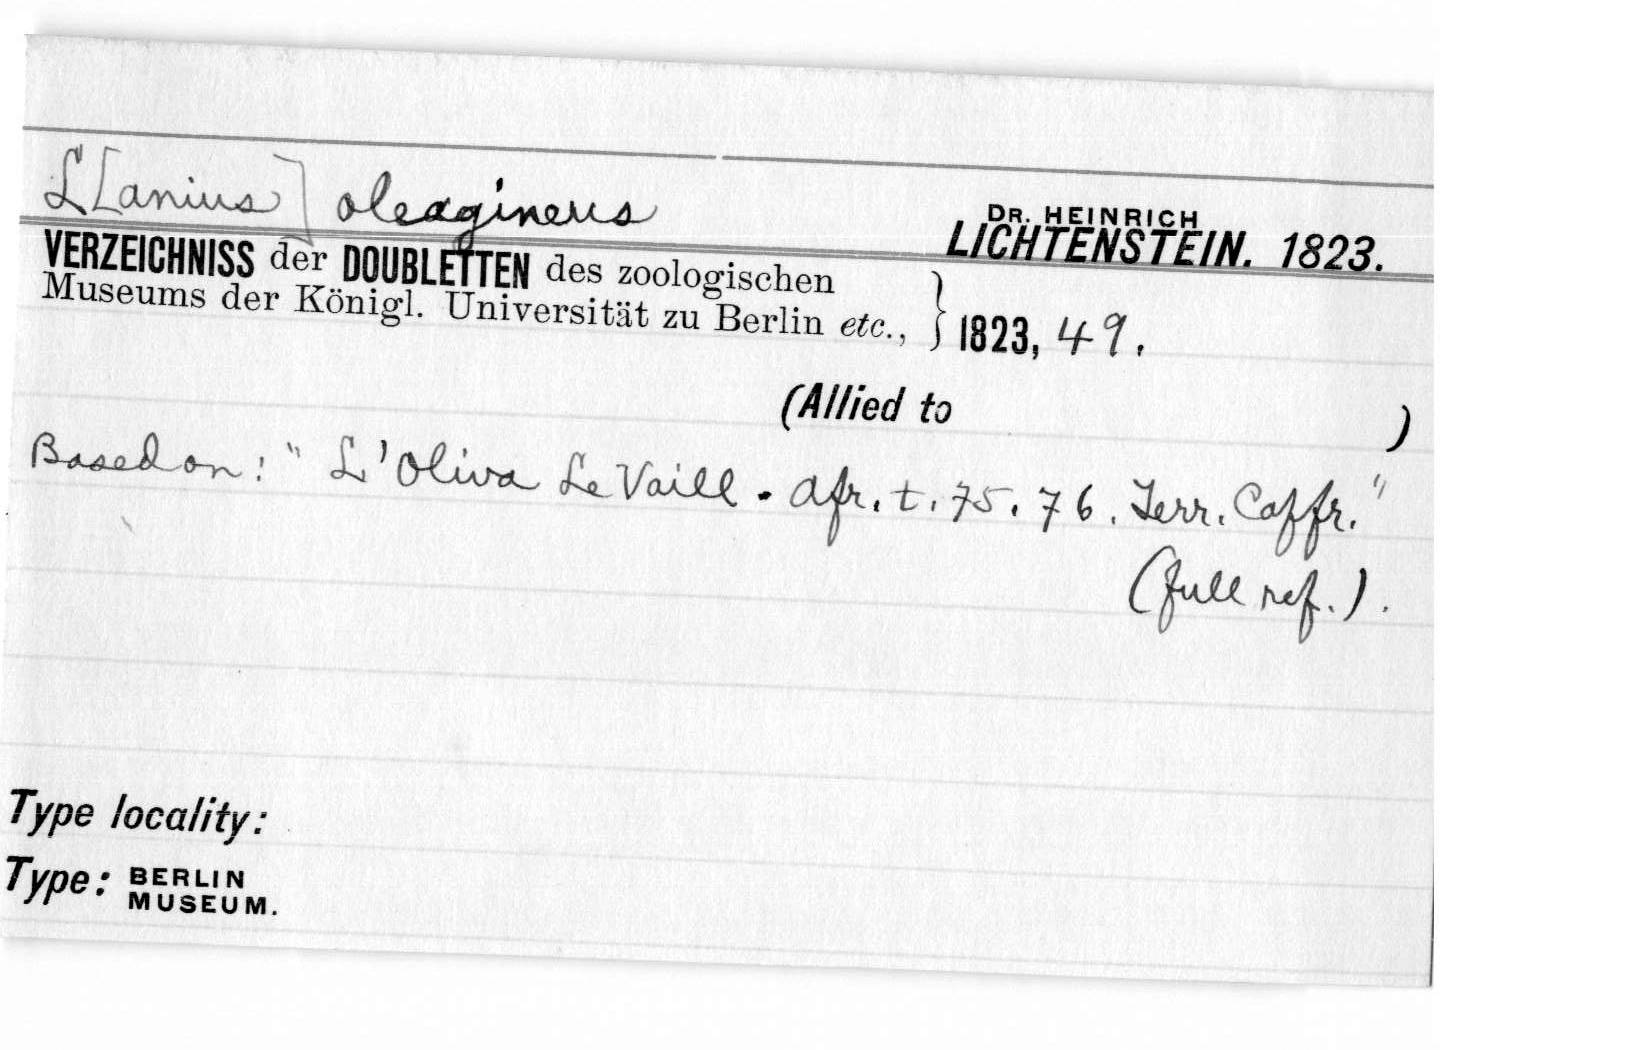 L[anius] oleagineus
DR. HEINRICH
LICHTENSTEIN. 1823.
VERZEICHNISS der DOUBLETTEN des zoologischen
Museums der Königl. Universität zu Berlin etc., } 1823, 49.
(Allied to )
Based on: "L'Oliva Le Vaill. afr. t. 75. 76. Terr. Caffr."
(full ref.).
Type locality:
Type: BERLIN
MUSEUM.